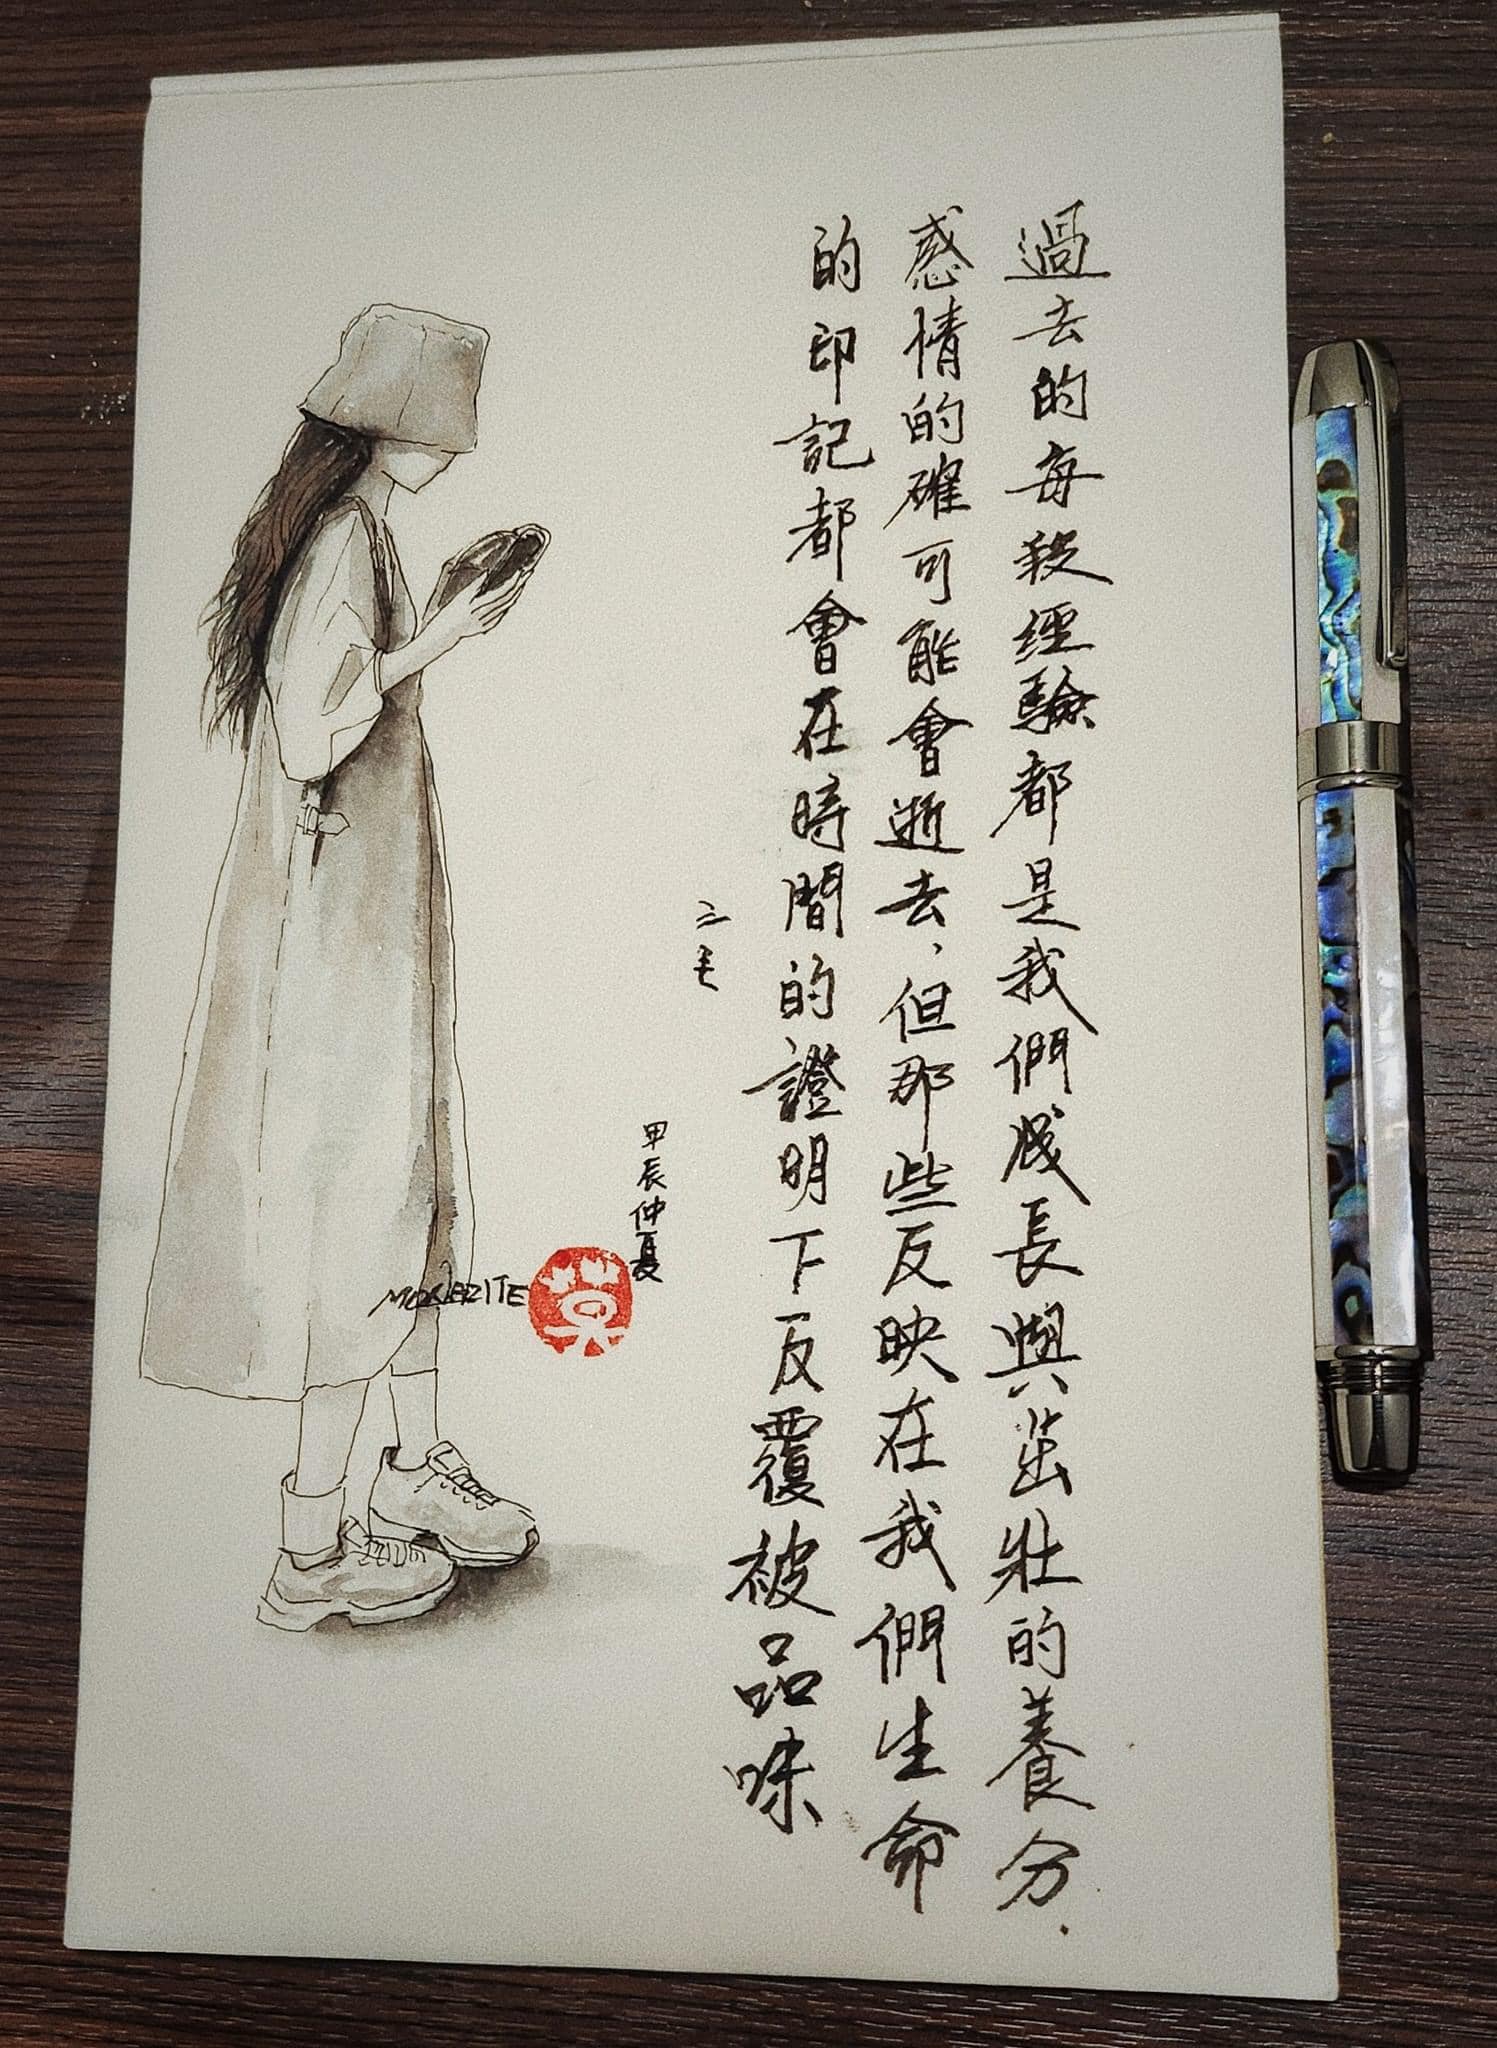 過去的每段經驗都是我們成長與茁壯的養分.
感情的確可能會逝去,但那些反映在我們生命
的印記都會在時間的證明下反覆被品味
三毛
甲辰仲夏
MONERITE